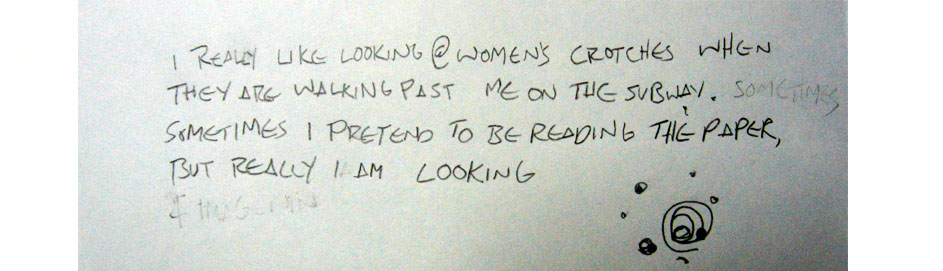 I REALLY LIKE LOOKING @ WOMEN'S CROTCHES WHEN
THEY ARE WALKING PAST ME ON THE SUBWAY. SOMETIMES
SOMETIMES I PRETEND TO BE READING THE PAPER,
BUT REALLY I AM LOOKING